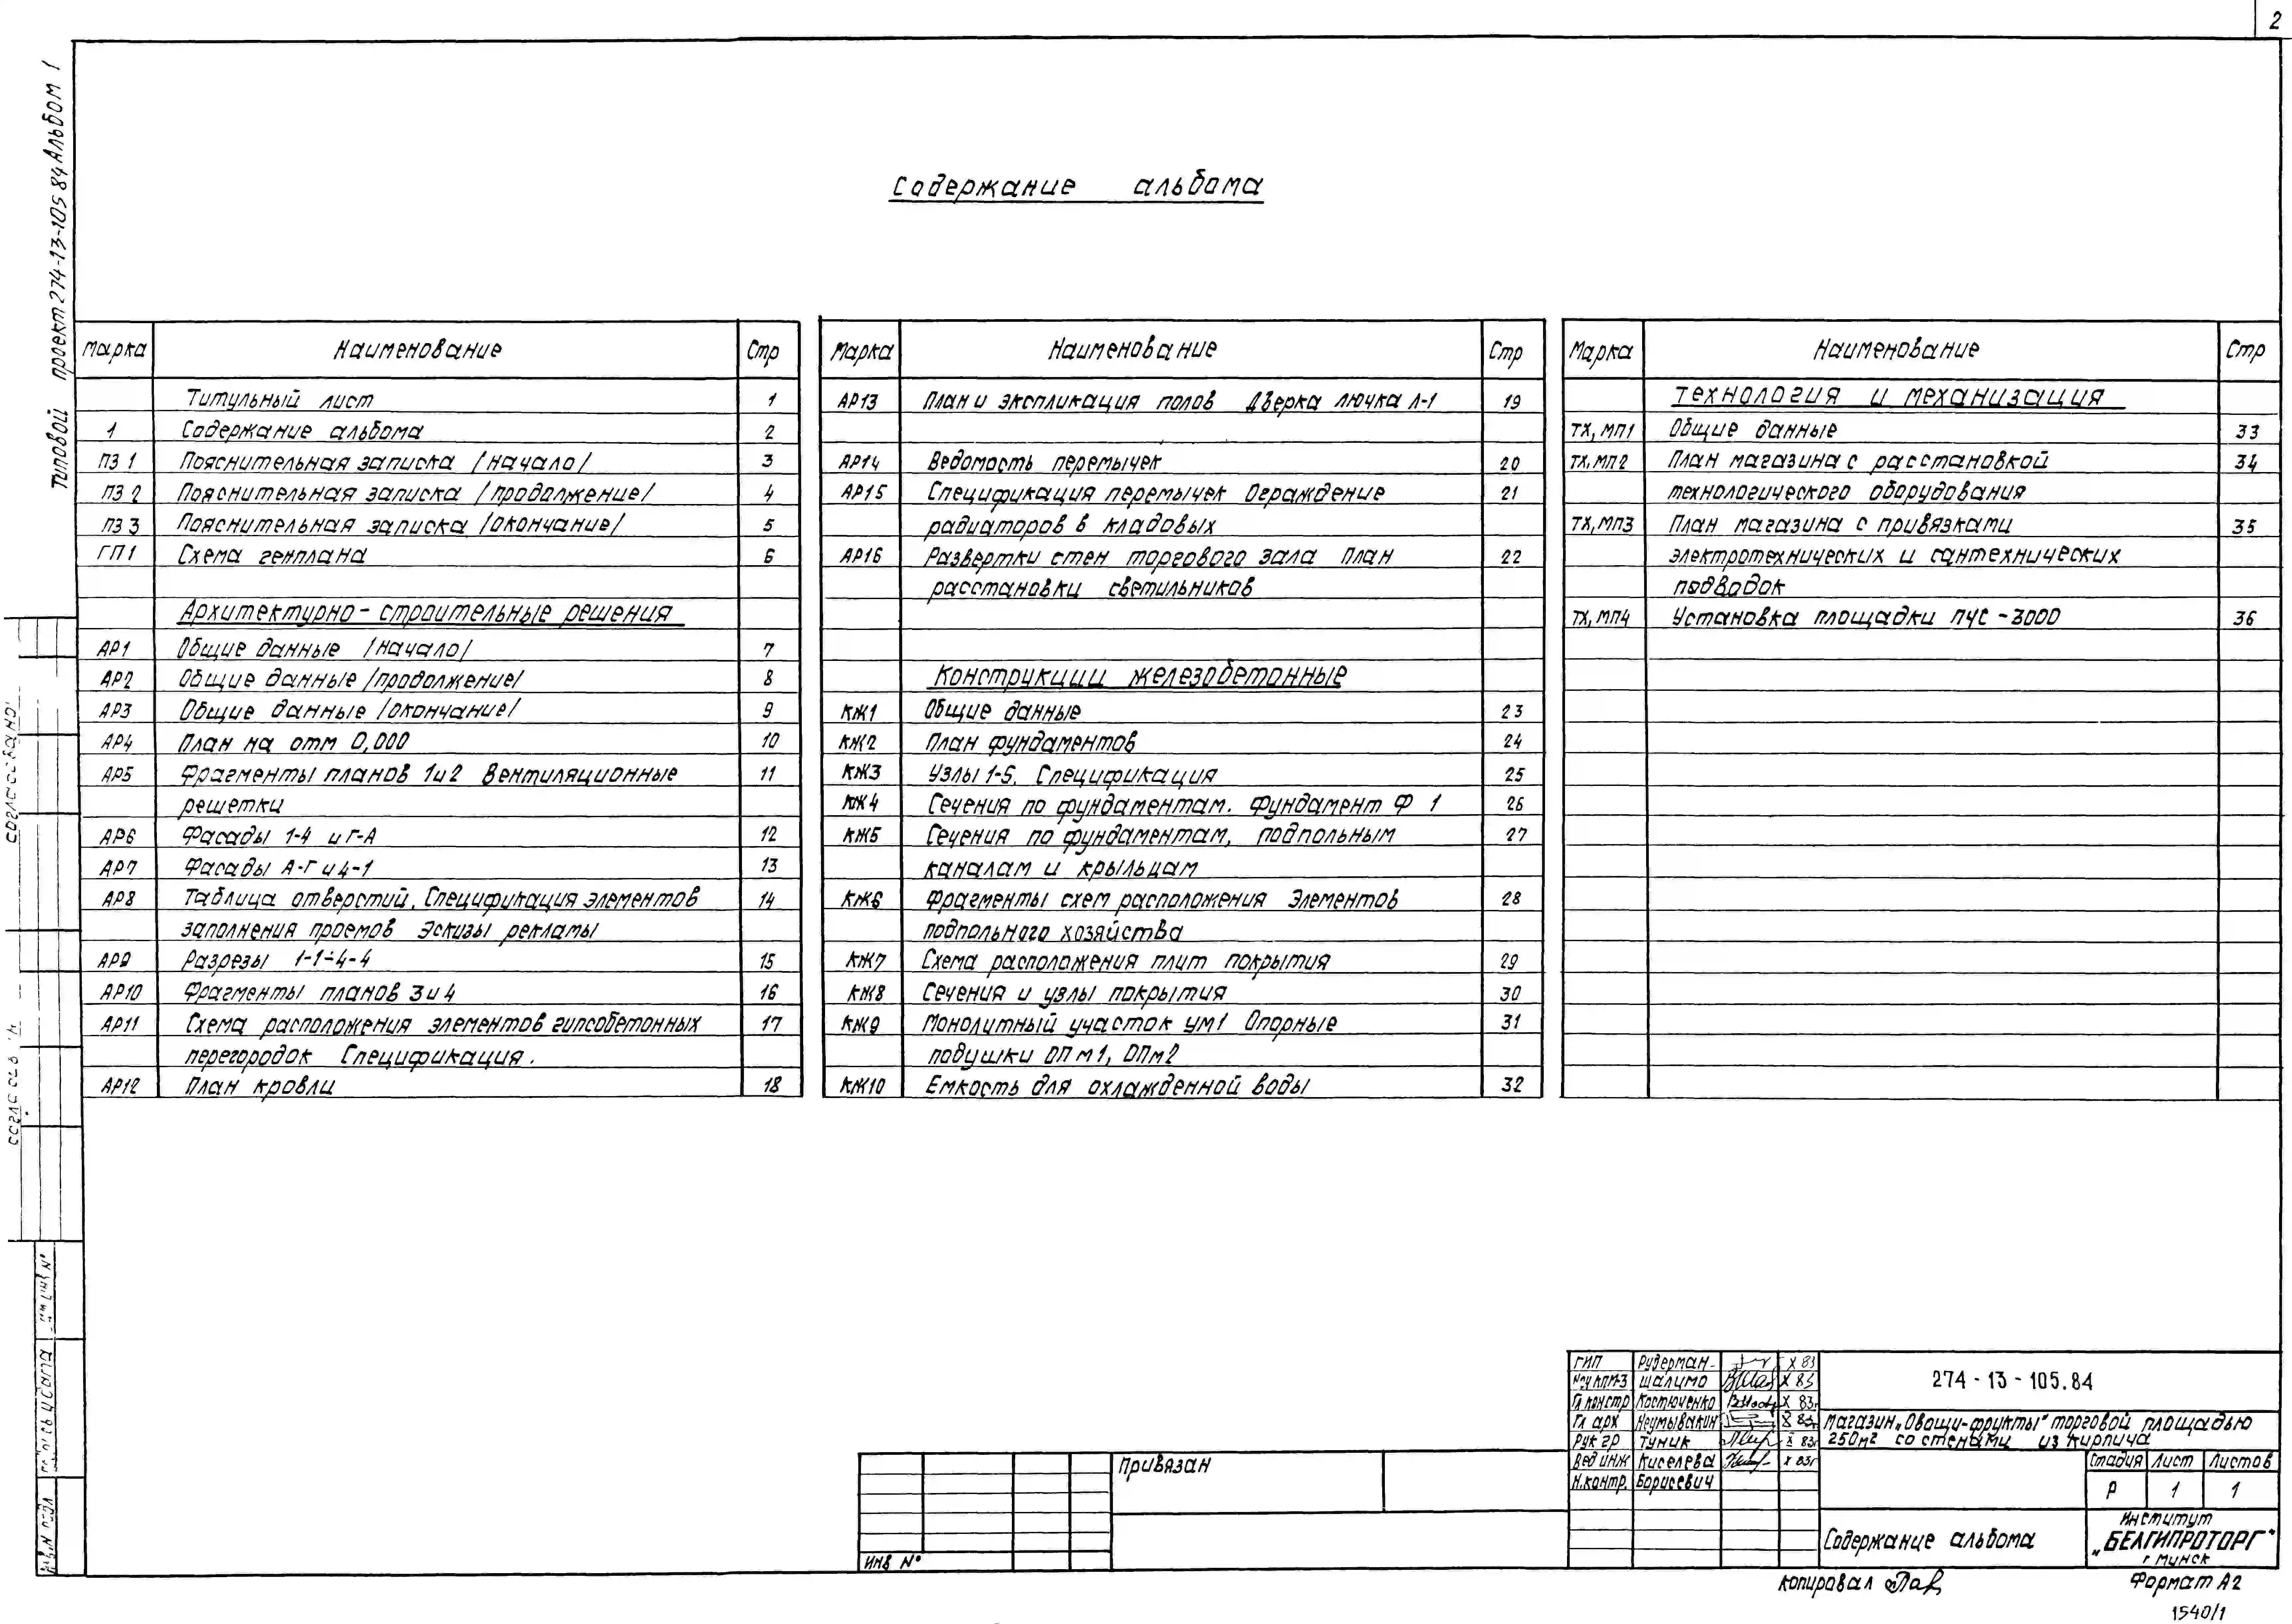 2
Типовой проект 274-13-105 84 Альбом 1
Содержание альбома
Марка Наименование Стр
Титульный лист 1
1 Содержание альбома 2
ПЗ 1 Пояснительная записка /начало/ 3
ПЗ 2 Пояснительная записка /продолжение/ 4
ПЗ 3 Пояснительная записка /окончание/ 5
ГП1 Схема генплана 6
Архитектурно-строительные решения
АР1 Общие данные /начало/ 7
АР2 Общие данные /продолжение/ 8
АР3 Общие данные /окончание/ 9
АР4 План на отм 0,000 10
АР5 Фрагменты планов 1и2 Вентиляционные 11
решетки
АР6 Фасады 1-4 и Г-А 12
АР7 Фасады А-Г и 4-1 13
АР8 Таблица отверстий. Спецификация элементов 14
заполнения проемов Эскизы рекламы
АР9 Разрезы 1-1÷4-4 15
АР10 Фрагменты планов 3 и 4 16
АР11 Схема расположения элементов гипсобетонных 17
перегородок Спецификация.
АР12 План кровли 18
Марка Наименование Стр
АР13 План и экспликация полов Дверка лючка Л-1 19
АР14 Ведомость перемычек 20
АР15 Спецификация перемычек Ограждение 21
радиаторов в кладовых
АР16 Развертки стен торгового зала План 22
расстановки светильников
Конструкции железобетонные
КЖ1 Общие данные 23
КЖ2 План фундаментов 24
КЖ3 Узлы 1-5. Спецификация 25
КЖ4 Сечения по фундаментам. Фундамент Ф 1 26
КЖ5 Сечения по фундаментам, подпольным 27
каналам и крыльцам
КЖ6 Фрагменты схем расположения Элементов 28
подпольного хозяйства
КЖ7 Схема расположения плит покрытия 29
КЖ8 Сечения и узлы покрытия 30
КЖ9 Монолитный участок УМ1 Опорные 31
подушки ОПм1, ОПм2
КЖ10 Емкость для охлажденной воды 32
Марка Наименование Стр
Технология и механизация
ТХ, МП1 Общие данные 33
ТХ, МП2 План магазина с расстановкой 34
технологического оборудования
ТХ, МП3 План магазина с привязками 35
электротехнических и сантехнических
подводок
ТХ, МП4 Установка площадки ПЧС-3000 36
Согласовано
Инв.N подл
ГИП Рудерман X 83
Шалимо X 83
Гл констр Костюченко X 83г
Гл арх Неумывакин X 83г
Рук гр Туник X 83г
Вед инж Киселева X 83г
Н.контр. Борисевич
274-13-105.84
Магазин „Овощи-фрукты" торговой площадью
250м2 со стенами из кирпича
Стадия Лист Листов
Р 1 1
Содержание альбома
Институт
„БЕЛГИПРОТОРГ"
г Минск
Привязан
Инв N°
Копировал
Формат А2
1540/1